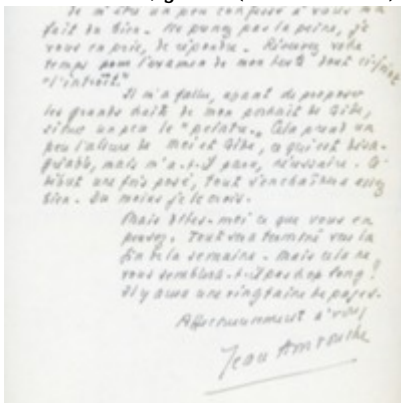 De m'être un peu confessé à vous m'a
fait du bien. Ne prenez pas la peine, je
vous en prie, de répondre. Réservez votre
temps pour l'examen de mon texte dont ci-joint
"l'introït."
Il m'a fallu, avant de proposer
les grands traits de mon portrait de Gide,
situer un peu le "peintre". Cela prend un
peu l'allure de Moi et Gide, ce qui est désa-
gréable, mais m'a-t-il paru, nécessaire. Ce
début une fois posé, tout s'enchaînera assez
bien. Du moins je le crois.
Mais dites-moi ce que vous en
pensez. Tout sera terminé vers la
fin de la semaine. Mais cela ne
vous semblera-t-il pas trop long ?
Il y aura une vingtaine de pages.
Affectueusement à vous
Jean Amrouche